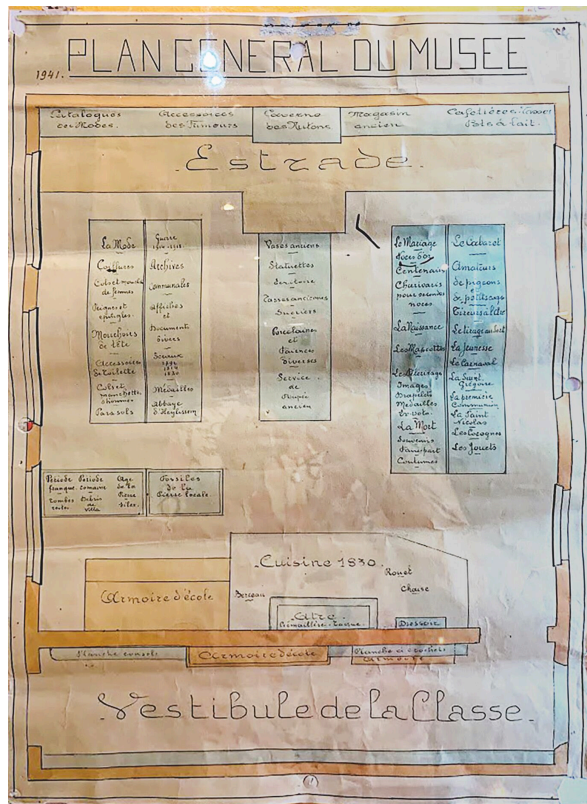 PLAN GENERAL DU MUSEE
1941.
Catalogues
des Modes.
Accessoires
des Fumeurs
Caverne
des Nutons
Magasin
ancien
Cafetières
Pots à lait.
Estrade.
La Mode
Coiffures
Cols et
de femmes
Peignes et
épingles
Mouchoirs
de tête
Accessoires
de toilette
Cols et
manchettes
d'hommes
Parasols
Guerre
1914-1918
Archives
Communales
Affiches
et
Documents
divers
Sceaux
1830
Médailles
Abbaye
d'Heylissem
Vases anciens
Statuettes
Ecritoire
Tasses anciennes
Sucriers
Porcelaines
et
Faïences
diverses
Service
de
Poupée
ancien
Le Mariage
Noces d'or
Centenaires
Charivaris
pour secondes
noces
La Naissance
Les Mascottes
Le Pèlerinage
Images
Drapelets
Médailles
Ex-voto
La Mort
Souvenirs
Faire part
Coutumes
Le Cabaret
Amateurs
de pigeons
Le tirage au sort
La Jeunesse
Le Carnaval
La Saint
Grégoire
La première
Communion
La Saint
Nicolas
Les Jouets
Période
franque
tombes
Période
romaine
Débris
de
villa
Age
de la
Pierre
silex
Fossiles
de la
Pierre locale.
Cuisine 1830.
Rouet
Chaise
Armoire d'école
Berceau
Atre.
Dressoir
Planche
Armoire d'école
Planche à crochets
Armoire
Vestibule de la Classe.